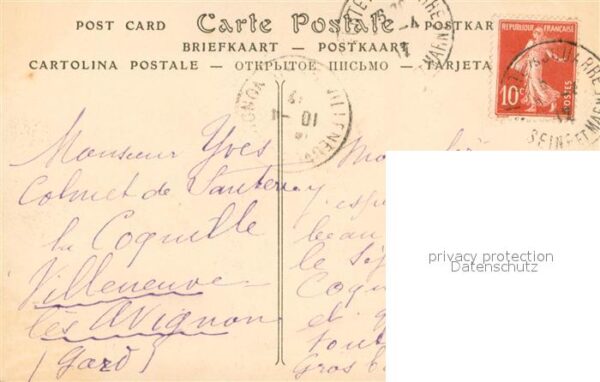 POST CARD Carte Postale POSTKAR
BRIEFKAART — POSTKAART
CARTOLINA POSTALE — ОТКРЫТОЕ ПИСЬМО — TARJETA
REPUBLIQUE FRANÇAISE
10c POSTES
SEINE ET MARNE
Monsieur Yves
Colmet de Santerre
la Coquille
Villeneuve
lès Avignon
(Gard)
beau
le
Coqu
et
tout
Gros
privacy protection
Datenschutz